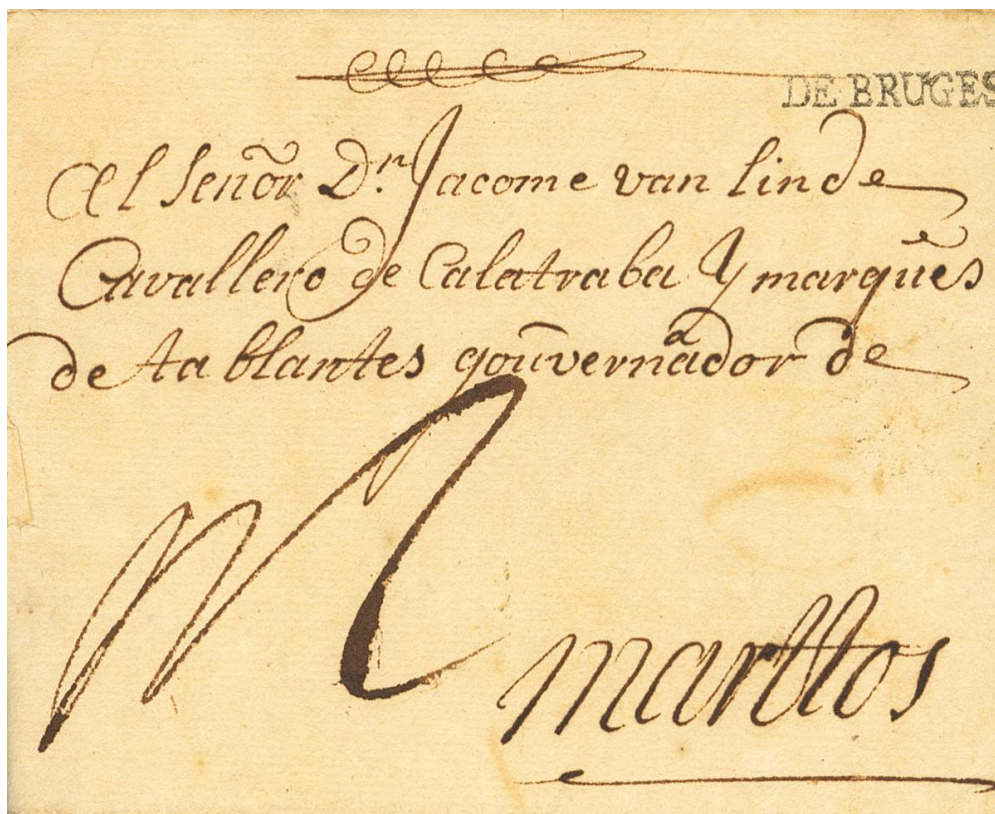 DE BRUGES
Al Señor D.n Jacome van linde
Cavallero de Calatraba y marques
de tablantes gouvernador de
marttos